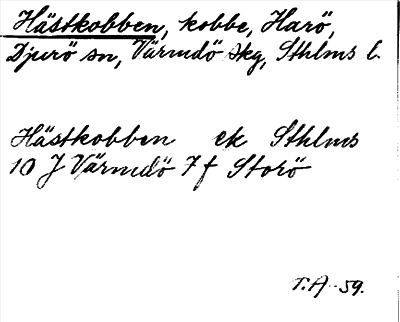 Hästkobben, kobbe, Harö,
Djurö sn, Värmdö skg, Sthlms l.
Hästkobben ek Sthlms
10 J Värmdö 7 f Storö
T.A -59.